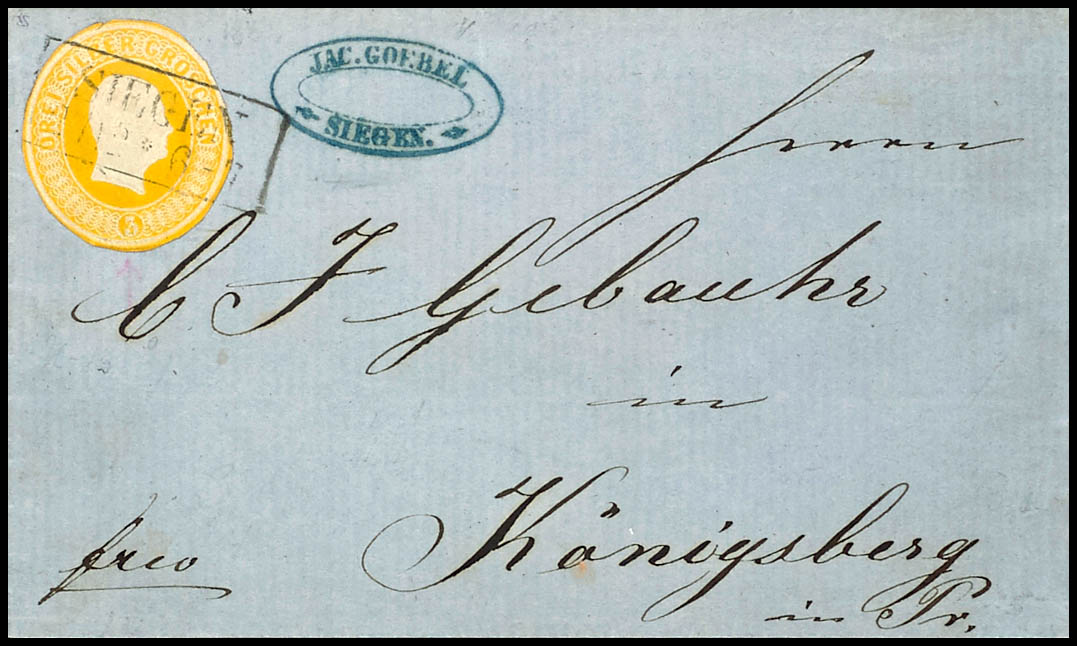 DREI SILBER GROSCHEN
3
JAC. GOEBEL
SIEGEN.
Herrn
C F Gebauhr
in
Königsberg
in Pr.
frco